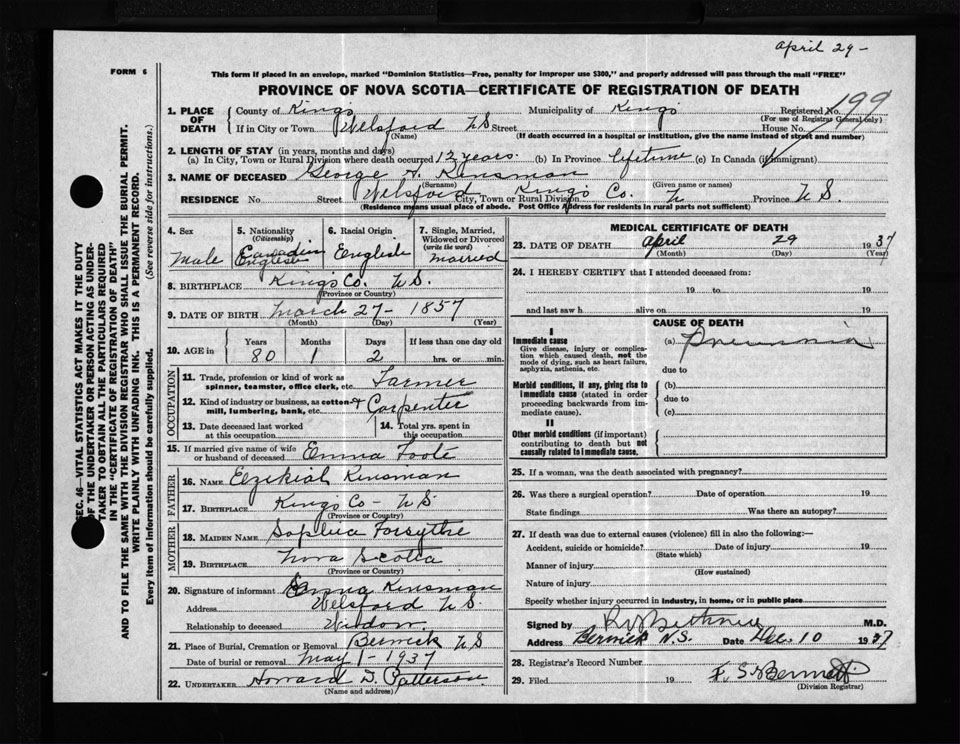 April 29-
FORM 6
This form if placed in an envelope, marked "Dominion Statistics—Free, penalty for improper use $300," and properly addressed will pass through the mail "FREE"
PROVINCE OF NOVA SCOTIA—CERTIFICATE OF REGISTRATION OF DEATH
1. PLACE OF DEATH County of Kings Municipality of Kings Registered No. 199
(For use of Registrar General only)
If in City or Town Welsford NS Street House No.
(Name) (If death occurred in a hospital or institution, give the name instead of street and number)
2. LENGTH OF STAY (in years, months and days)
(a) In City, Town or Rural Division where death occurred 12 years. (b) In Province lifetime (c) In Canada (if immigrant)
3. NAME OF DECEASED George A. Kinsman
(Surname) (Given name or names)
RESIDENCE No. Street Welsford City, Town or Rural Division King's Co. N Province N S.
(Residence means usual place of abode. Post Office Address for residents in rural parts not sufficient)
4. Sex 5. Nationality (Citizenship) 6. Racial Origin 7. Single, Married, Widowed or Divorced (write the word)
Male Canadian English English married
8. BIRTHPLACE King's Co. N.S.
(Province or Country)
9. DATE OF BIRTH March 27- 1857
(Month) (Day) (Year)
10. AGE in Years Months Days If less than one day
80 1 2 hrs. or min.
OCCUPATION
11. Trade, profession or kind of work as spinner, teamster, office clerk, etc. Farmer
12. Kind of industry or business, as cotton mill, lumbering, bank, etc. + Carpenter
13. Date deceased last worked at this occupation
14. Total yrs. spent in this occupation
15. If married give name of wife or husband of deceased Emma Foote
FATHER
16. NAME Ezekial Kinsman
17. BIRTHPLACE King's Co - N S
(Province or Country)
MOTHER
18. MAIDEN NAME Sophia Forsythe
19. BIRTHPLACE Nova Scotia
(Province or Country)
20. Signature of informant Emma Kinsman
Address Welsford N S.
Relationship to deceased Widow.
21. Place of Burial, Cremation or Removal Berwick N S
Date of burial or removal May 1- 1937
22. UNDERTAKER Howard D. Patterson
(Name and address)
MEDICAL CERTIFICATE OF DEATH
23. DATE OF DEATH April 29 1937
(Month) (Day) (Year)
24. I HEREBY CERTIFY that I attended deceased from:
19 to 19
and last saw h alive on 19
CAUSE OF DEATH
I
Immediate cause
Give disease, injury or complication which caused death, not the mode of dying, such as heart failure, asphyxia, asthenia, etc.
(a) Pneumonia
due to
Morbid conditions, if any, giving rise to immediate cause (stated in order proceeding backwards from immediate cause).
(b)
due to
(c)
II
Other morbid conditions (if important) contributing to death but not causally related to immediate cause.
25. If a woman, was the death associated with pregnancy?
26. Was there a surgical operation? Date of operation 19
State findings Was there an autopsy?
27. If death was due to external causes (violence) fill in also the following:—
Accident, suicide or homicide? Date of injury 19
(State which)
Manner of injury
(How sustained)
Nature of injury
Specify whether injury occurred in industry, in home, or in public place
Signed by M.D.
Address Berwick N.S. Date Dec. 10 1937
28. Registrar's Record Number
29. Filed 19 F. S. Bennett
(Division Registrar)
SEC. 46—VITAL STATISTICS ACT MAKES IT THE DUTY
OF THE UNDERTAKER OR PERSON ACTING AS UNDERTAKER TO OBTAIN ALL THE PARTICULARS REQUIRED
IN THE "CERTIFICATE OF REGISTRATION OF DEATH"
AND TO FILE THE SAME WITH THE DIVISION REGISTRAR WHO SHALL ISSUE THE BURIAL PERMIT.
WRITE PLAINLY WITH UNFADING INK. THIS IS A PERMANENT RECORD.
Every item of information should be carefully supplied. (See reverse side for instructions.)